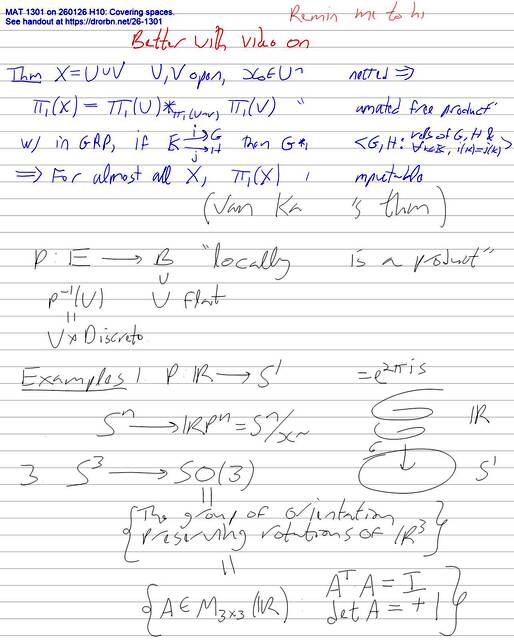 MAT 1301 on 260126 H10: Covering spaces.
See handout at https://drorbn.net/26-1301
Remin me to
Better with video on
Thm X=U∪V U,V open, x₀∈U∩ nected ⇒
π₁(X) = π₁(U) *π₁(U∩V) π₁(V) " amated free product"
w/ in GRP, if K i→G j→H then G* <G,H: rels of G, H & ∀k∈K, i(k)=j(k)>
⇒ For almost all X, π₁(X) i mputable
(Van Ka 's thm)
p: E → B "locally is a product"
p⁻¹(U) U flat
U × Discrete
Examples 1. p: ℝ → S¹ = e^{2πis}
Sⁿ → ℝPⁿ = Sⁿ/x~ ℝ
3. S³ → SO(3) S¹
{The group of orientation preserving rotations of ℝ³}
{A∈M₃ₓ₃(ℝ) : AᵀA = I det A = +1}